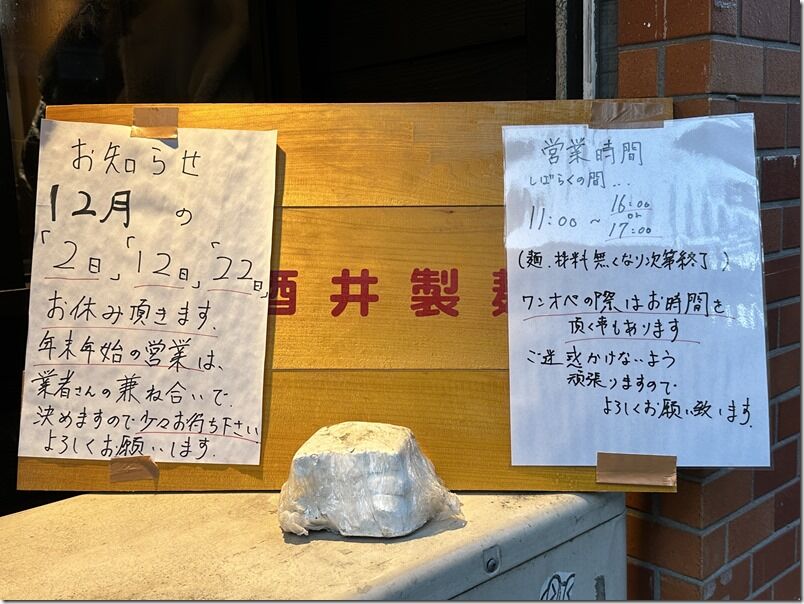 お知らせ
12月の
「2日」「12日」「22日」
お休み頂きます.
年末年始の営業は、
業者さんの兼ね合いで.
決めますので少々お待ち下さい
よろしくお願いします.
酒井製麺
営業時間
しばらくの間...
11:00 ~ 16:00
or
17:00
(麺、材料無くなり次第終了)
ワンオペの際はお時間を
頂く事もあります
ご迷惑かけないよう
頑張りますので
よろしくお願い致します.